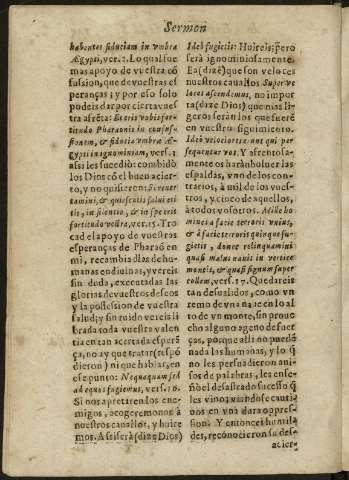 Sermon
habentes fiduciam in vmbra
Ægypti, ver. 2. Lo qual fue
mas apoyo de vuestra cō
fusion, que de vuestras es
peranças; y por eso solo
podeis dar por cierta vues
tra afrēta: Et eris vobis for-
titudo Pharaonis in confus-
sionem, & fiducia vmbræ Æ-
gypti in ignominiam, vers. 3
assi les sucediò: combidò
los Dios cō el buen acier-
to, y no quisieren: Si rever
tamini, & quiescatis salui eri
tis, in silentio, & in spe erit
fortitudo vestra, ver. 15. Tro
cad el apoyo de vuestras
esperanças de Pharaō en
mi, recambiadlas de hu-
manas en divinas, y vereis
sin duda, executadas las
glorias de vuestros deseos
y la possession de vuestra
salud; y sin ruido vereis li
brada toda vuestra valen
tia en tan acertada esperā
ça, no ay que tratar (respō
dieron) ni que hablar, en
ese punto: Nequaquam sed
ad equos fugiemus, vers. 16.
Si nos apretiren los ene-
migos, acogeremonos à
nuestros cauallos, y huire
mos. Asi serà (dize Dios)
Ideò fugietis: Huireis; pero
serà ignominiosamente.
Ea (dizē) que son veloces
nuestros cauallos Super ve
loces ascendemus, no impor
ta (dize Dios) que mas li-
geros serán los que fuerē
en vuestro siguimiento.
Ideò velociores erunt qui per
sequentur vos. Y afrentosa-
mente os harān boluer las
espaldas, vno de los con-
trarios, à mil de los vues-
tros, y cinco de aquellos,
à todos vosotros. Mille ho
mines a facie terroris vnius,
& à facie terroris quinque fu-
gietis, donec relinquamini
quasi malus nauis in vertice
montis, & quasi signum super
collem, vers. 17. Quedareis
tan desualidos, como vn
remo de vna naue en lo al
to de vn monte, sin proue
cho alguno ageno de fuer
ças, porque alli no puedē
nada las humanas, y lo q̄
no les persuadieron aui-
sos de palabras, les ense-
ñò el desastrado sucesso q̄
les vino; viendose cauti
vos en vna dura opres-
sion. Y entonces humil-
des, reconocieron su des-
acier-